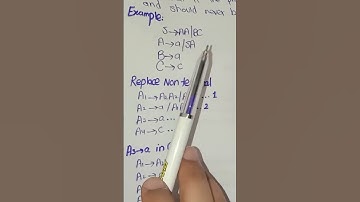 and should never b
Example:
S→AA/BC
A→a/SA
B→a
C→c
Replace Non te al
A₁→A₂A₂/A ... 1
A₂→a/A₁ ... 2
A₃→a..
A₄→C..
A₃→a in
A₁→A₂